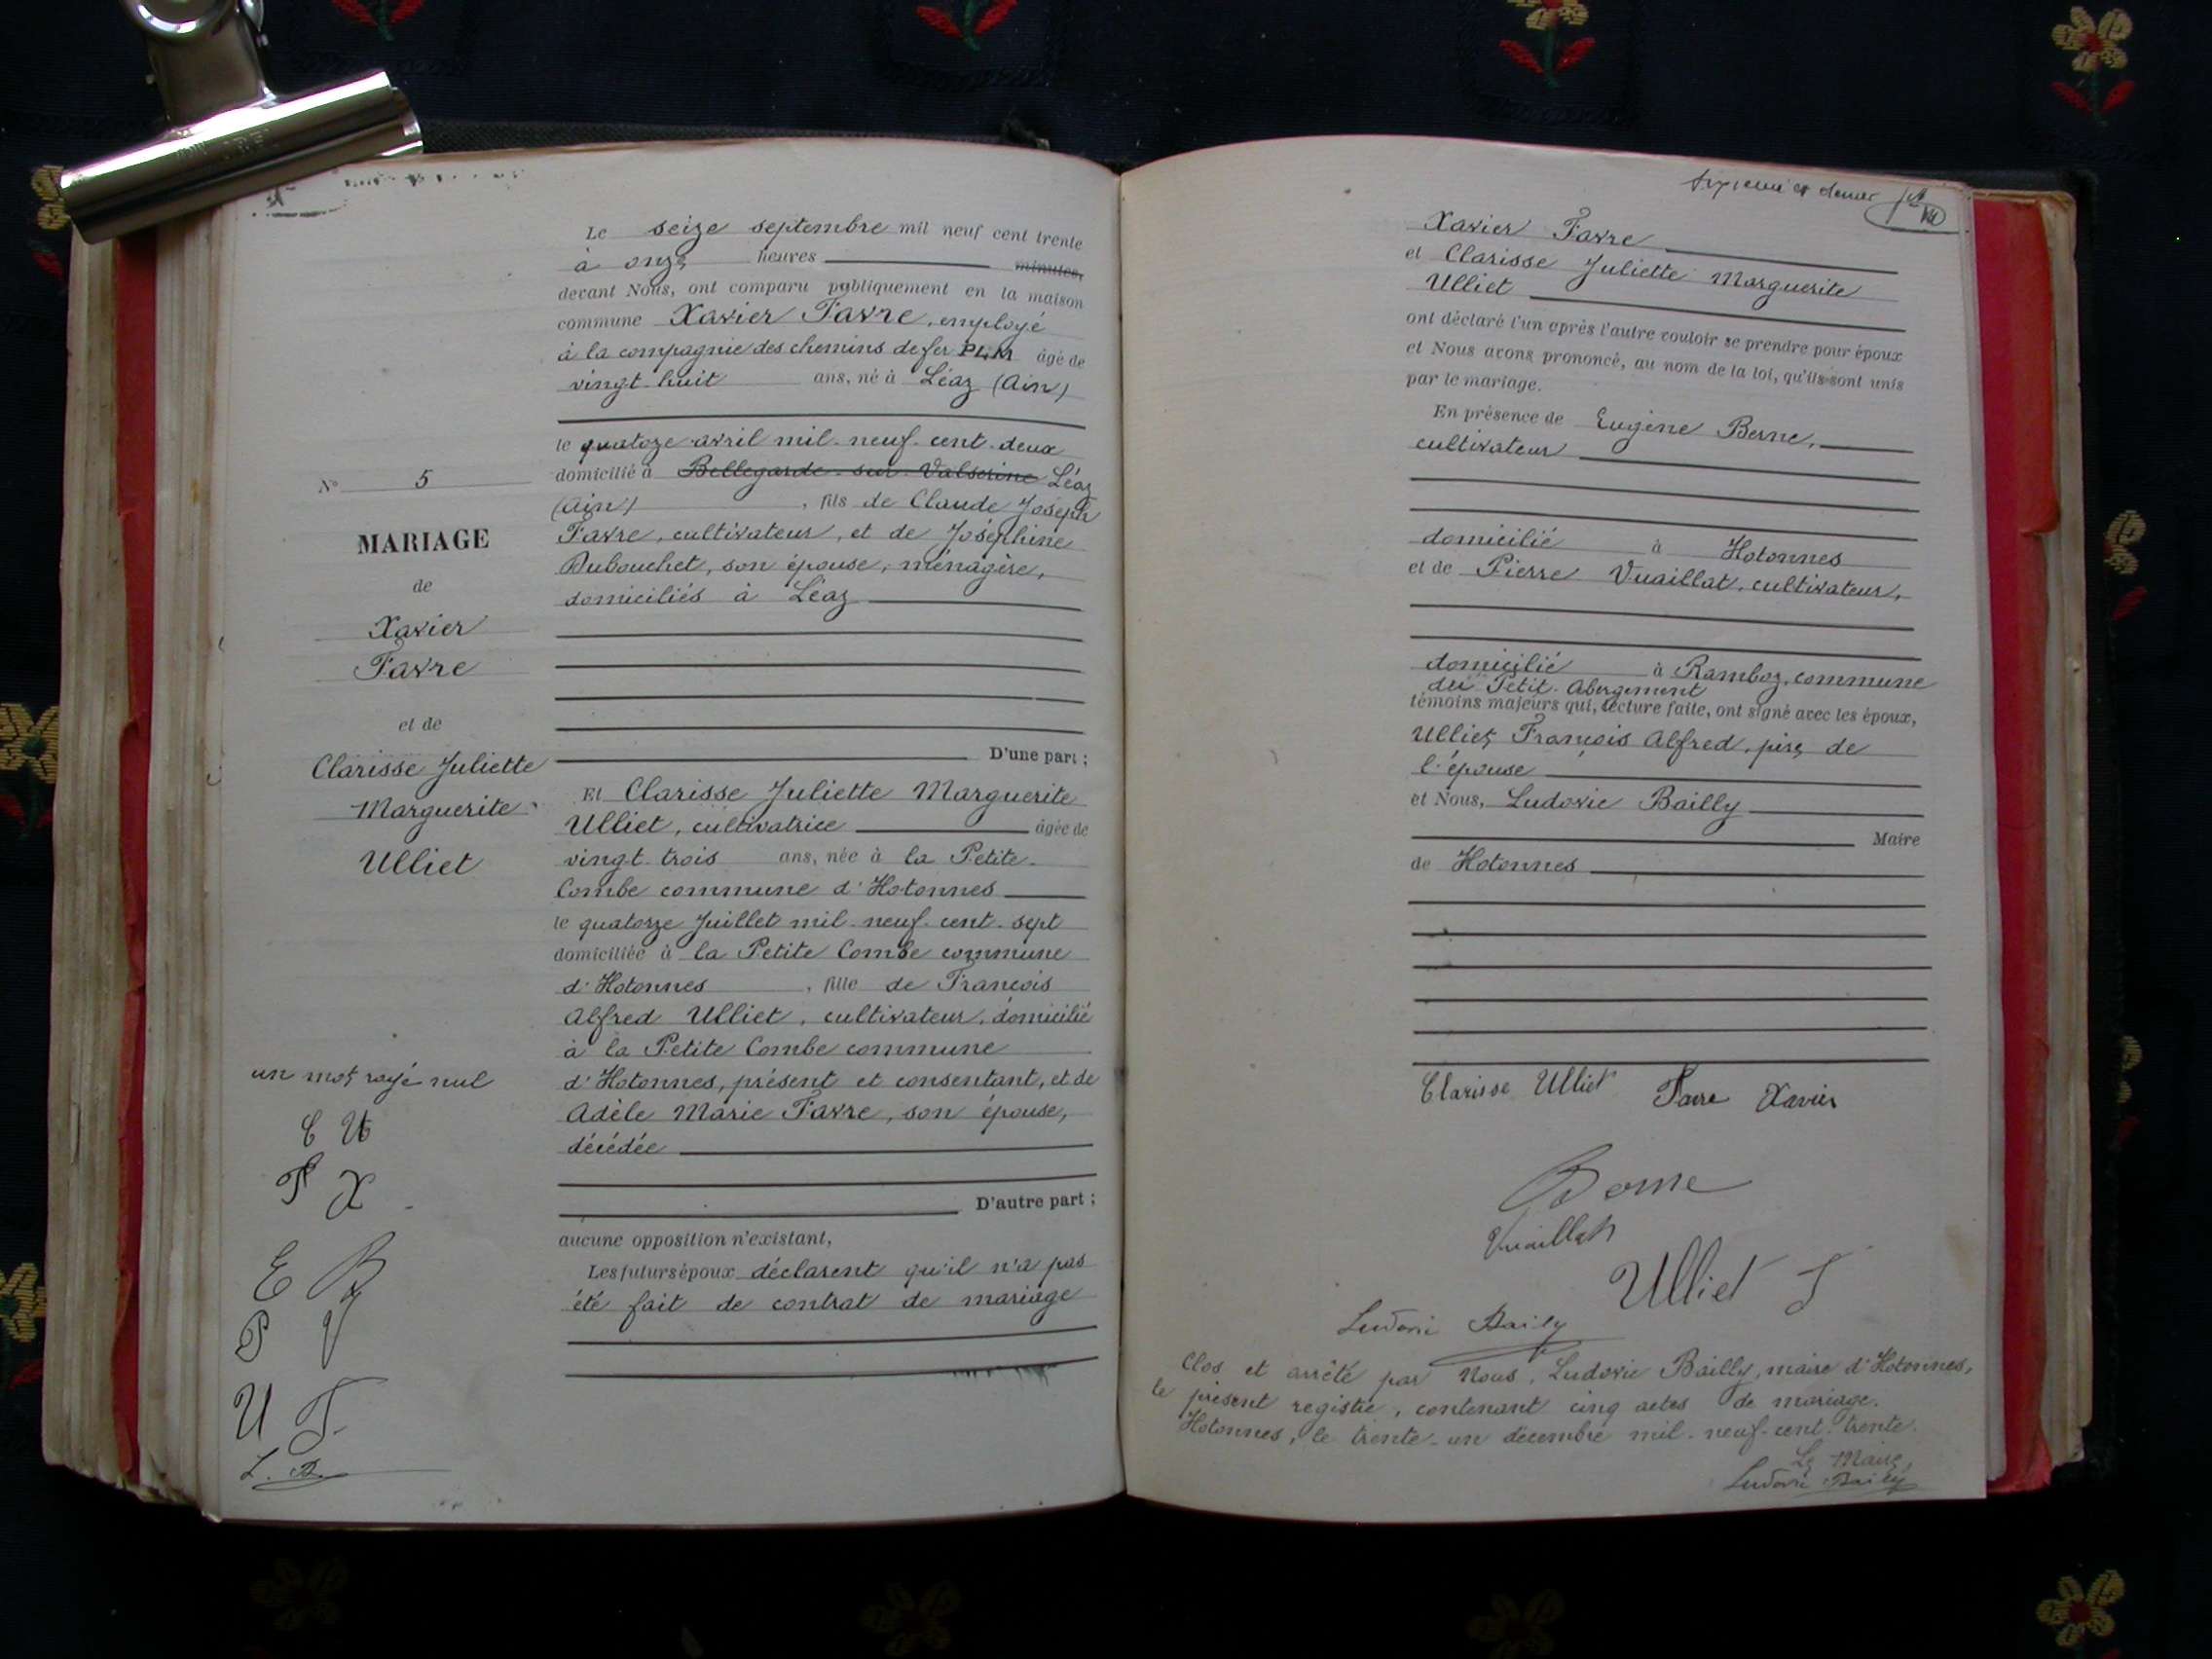 Le seize septembre mil neuf cent trente
à onze heures minutes,
devant Nous, ont comparu publiquement en la maison
commune Xavier Favre, employé
à la compagnie des chemins de fer PLM âgé de
vingt-huit ans, né à Léaz (Ain)
le quatoze avril mil-neuf-cent-deux
domicilié à Bellegarde-sur-Valserine Léaz
(Ain), fils de Claude Joseph
Favre, cultivateur, et de Joséphine
Dubouchet, son épouse, ménagère,
domiciliés à Léaz
D'une part ;
Et Clarisse Juliette Marguerite
Ulliet, cultivatrice âgée de
vingt-trois ans, née à la Petite-
Combe commune d'Hotonnes
le quatorze Juillet mil-neuf-cent-sept
domiciliée à la Petite Combe commune
d'Hotonnes, fille de François
Alfred Ulliet, cultivateur, domicilié
à la Petite Combe commune
d'Hotonnes, présent et consentant, et de
Adèle Marie Favre, son épouse,
décédée
D'autre part ;
aucune opposition n'existant,
Les futurs époux déclarent qu'il n'a pas
été fait de contrat de mariage
N° 5
MARIAGE
de
Xavier
Favre
et de
Clarisse Juliette
Marguerite
Ulliet
un mot rayé nul
C U
F X
E B
P V
U F
L. B.
Xavier Favre
et Clarisse Juliette Marguerite
Ulliet
ont déclaré l'un après l'autre vouloir se prendre pour époux
et Nous avons prononcé, au nom de la loi, qu'ils sont unis
par le mariage.
En présence de Eugène Berne,
cultivateur
domicilié à Hotonnes
et de Pierre Vuaillat, cultivateur,
domicilié à Ramboz, commune
du Petit-Abergement
témoins majeurs qui, lecture faite, ont signé avec les époux,
Ulliet François Alfred, père de
l'épouse
et Nous, Ludovic Bailly
Maire
de Hotonnes
Clarisse Ulliet Favre Xavier
Berne
Vuaillat
Ulliet F
Ludovic Bailly
Clos et arrêté par Nous, Ludovic Bailly, maire d'Hotonnes,
le présent registre, contenant cinq actes de mariage.
Hotonnes, le trente-un décembre mil-neuf-cent-trente.
Le Maire,
Ludovic Bailly